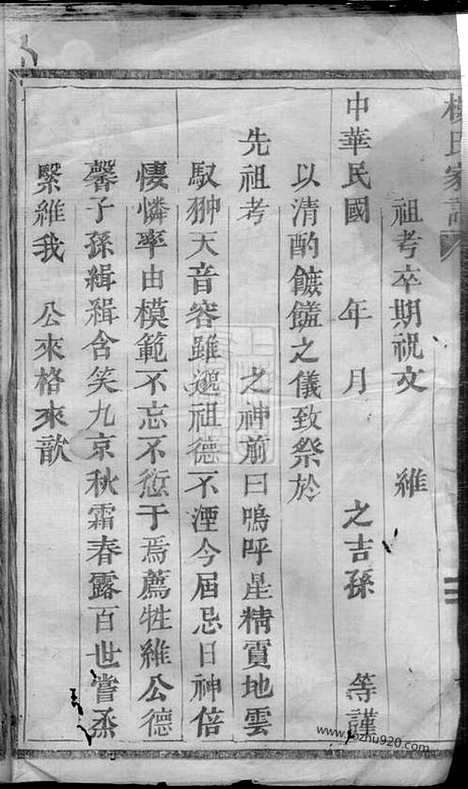 氏家
祖考卒期祝文 維
中華民國 年 月 之吉孫 等謹
以清酌饌饈之儀致祭於
先祖考 之神前曰嗚呼星精賁地雲
馭翀天音容雖邈祖德不湮今屆忌日神倍
悽憐率由模範不忘不愆于焉薦牲維公德
馨子孫緝緝含笑九京秋霜春露百世嘗烝
緊維我 公來格來歆
www.jiapu920.com